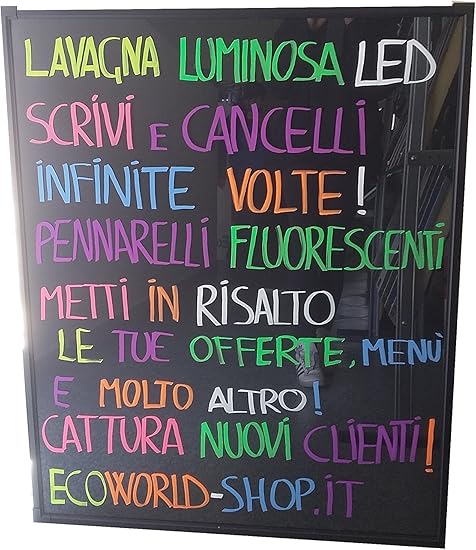 LAVAGNA LUMINOSA LED
SCRIVI E CANCELLI
INFINITE VOLTE!
PENNARELLI FLUORESCENTI
METTI IN RISALTO
LE TUE OFFERTE, MENÙ
E MOLTO ALTRO!
CATTURA NUOVI CLIENTI!
ECOWORLD-SHOP.IT